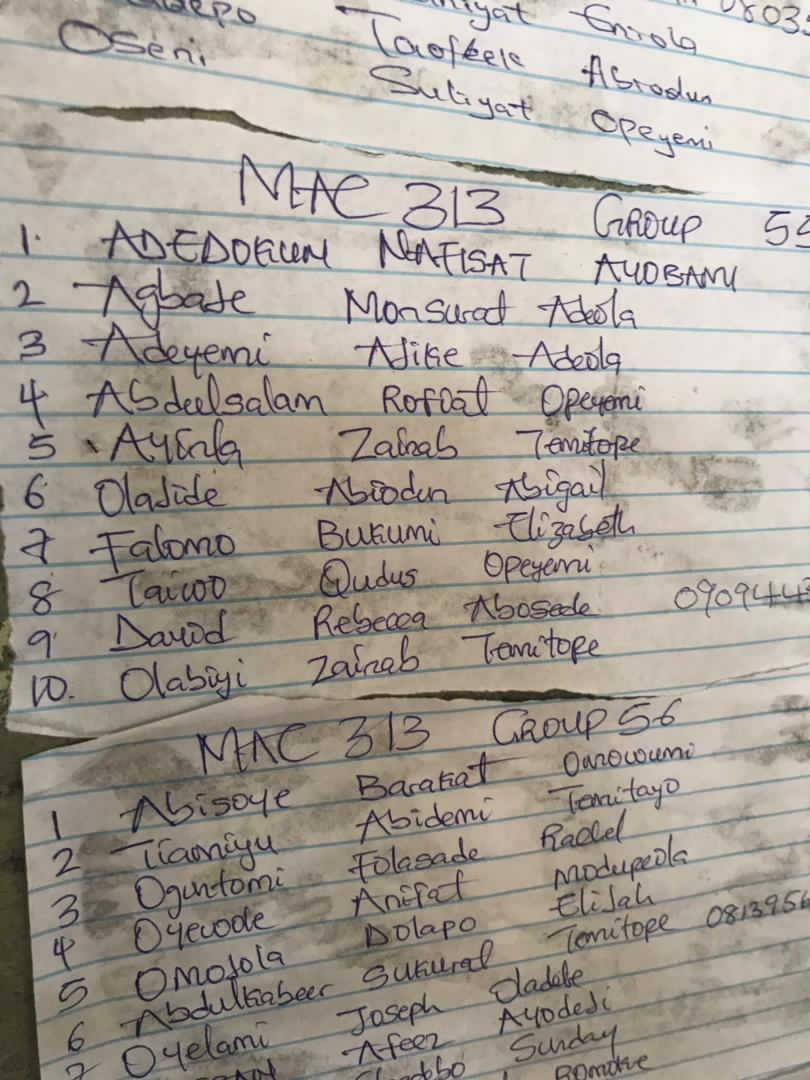 Oseni Taofeek Abiodun
Suliyat Opeyemi
MAC 313 GROUP
1. ADEDOKUN NAFISAT AYOBAMI
2 Agbaje Monsurat Adeola
3 Adeyemi Ajike Adeola
4 Abdulsalam Rofiat Opeyemi
5 Ayinla Zainab Temitope
6 Olajide Abiodun Abigail
7 Falomo Bukumi Elizabeth
8 Taiwo Qudus Opeyemi
9 David Rebecca Abosede
10. Olabiyi Zainab Temitope
MAC 313 GROUP 56
1 Abisoye Barakat Omowumi
2 Tiamiyu Abidemi Temitayo
3 Oguntomi Folasade Rachel
4 Oyewode Anifat Modupeola
5 Omojola Dolapo Elijah
6 Abdulkabeer Sukurat Temitope 0813956
7 Oyelami Joseph Oladele
Afeez Ayodeji
Sunday